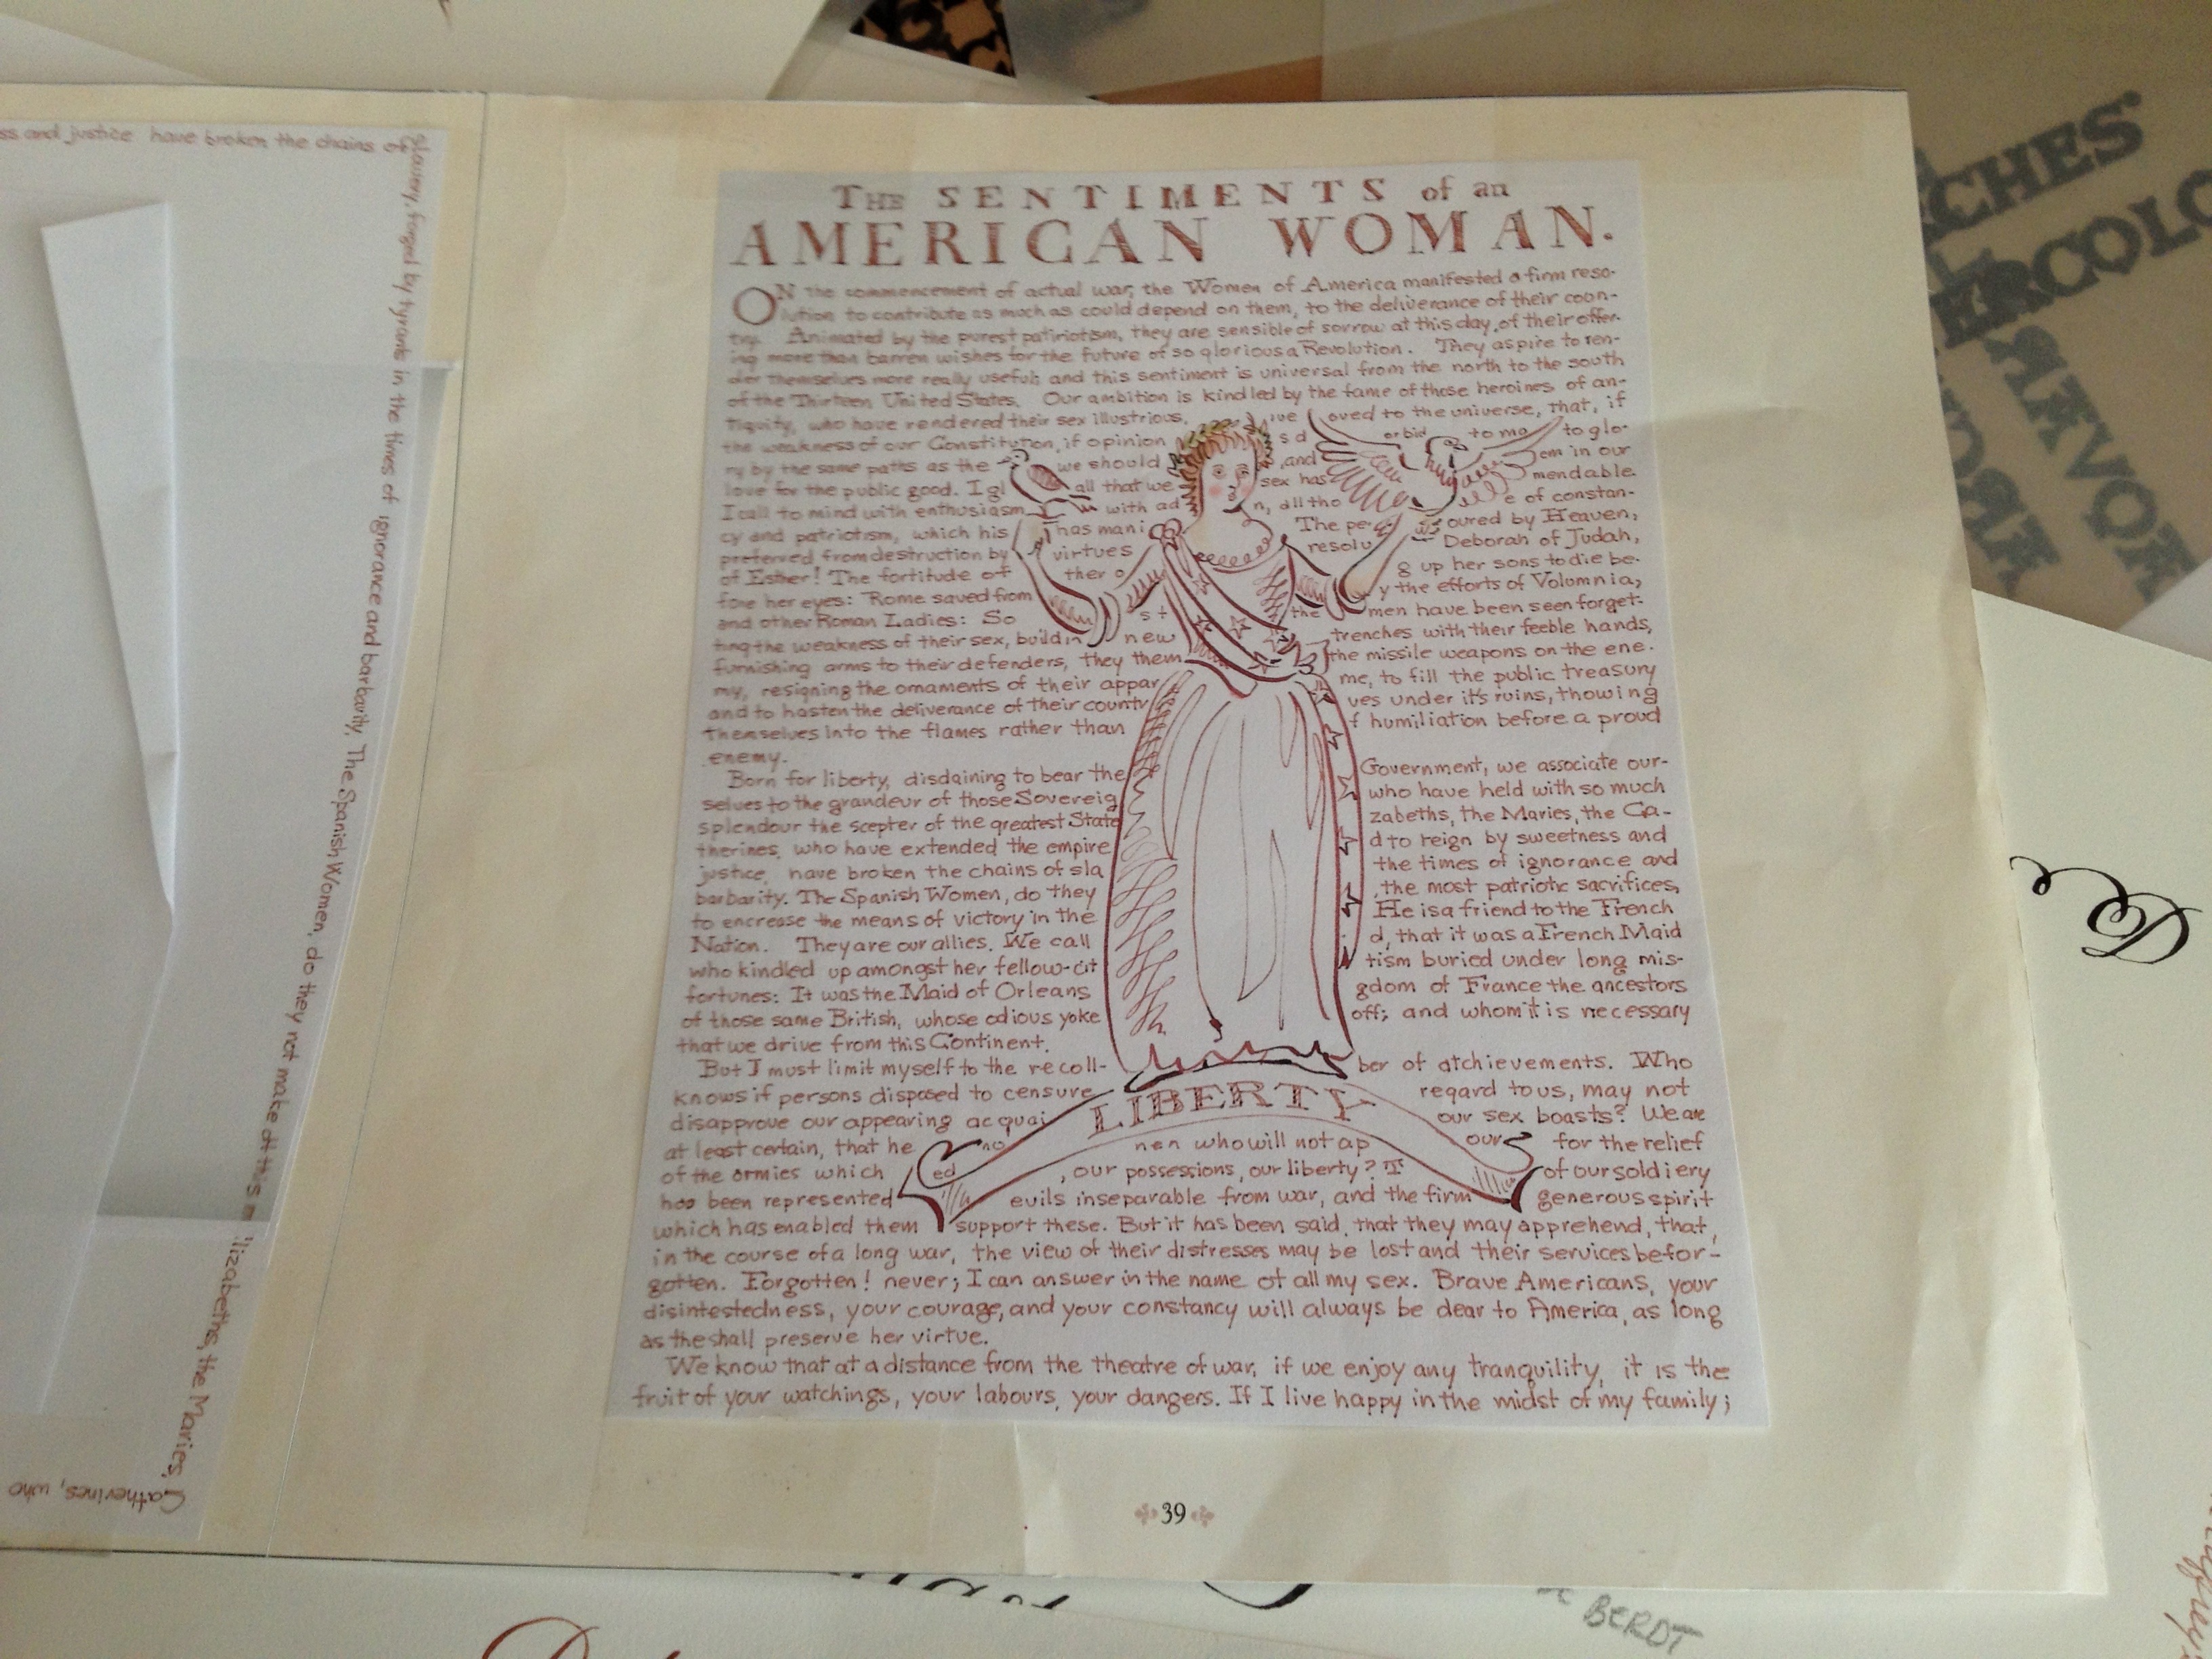 THE SENTIMENTS of an
AMERICAN WOMAN.
ON the commencement of actual war, the Women of America manifested a firm reso-
lution to contribute as much as could depend on them, to the deliverance of their coun-
try. Animated by the purest patiriotism, they are sensible of sorrow at this day, of their offer-
ing more than barren wishes for the future of so glorious a Revolution. They aspire to ren-
der themselves more really useful; and this sentiment is universal from the north to the south
of the Thirteen United States. Our ambition is kindled by the fame of those heroines of an-
tiquity, who have rendered their sex illustrious, ive oved to the universe, that, if
the weakness of our Constitution, if opinion s d orbid to ma to glo-
ry by the same paths as the we should , and em in our
love for the public good. I gl all that we sex has mendable.
I call to mind with enthusiasm with ad n, all tho e of constan-
cy and patriotism, which his has mani The pe oured by Heaven,
preferved from destruction by virtues resolu Deborah of Judah,
of Esther! The fortitude of ther o g up her sons to die be-
fore her eyes: Rome saved from y the efforts of Volumnia,
and other Roman Ladies: So st the men have been seen forget-
ting the weakness of their sex, buildin new trenches with their feeble hands,
furnishing arms to their defenders, they them the missile weapons on the ene-
my, resigning the ornaments of their appar me, to fill the public treasury
and to hasten the deliverance of their countr ves under it's ruins, thowing
themselves into the flames rather than f humiliation before a proud
enemy.
Born for liberty, disdaining to bear the Government, we associate our-
selves to the grandeur of those Sovereig who have held with so much
splendour the scepter of the greatest State zabeths, the Maries, the Ca-
therines, who have extended the empire d to reign by sweetness and
justice, have broken the chains of sla the times of ignorance and
barbarity. The Spanish Women, do they the most patriotic sacrifices,
to encrease the means of victory in the He is a friend to the French
Nation. They are our allies. We call d, that it was a French Maid
who kindled up amongst her fellow-cit tism buried under long mis-
fortunes: It was the Maid of Orleans gdom of France the ancestors
of those same British, whose odious yoke off; and whom it is necessary
that we drive from this Continent.
But I must limit myself to the recoll- ber of atchievements. Who
knows if persons disposed to censure regard to us, may not
disapprove our appearing acquai our sex boasts? We are
LIBERTY
at least certain, that he no nen who will not ap our for the relief
of the armies which ed , our possessions, our liberty? T of our soldiery
has been represented evils inseparable from war, and the firm generous spirit
which has enabled them support these. But it has been said, that they may apprehend, that,
in the course of a long war, the view of their distresses may be lost and their services be for-
gotten. Forgotten! never; I can answer in the name of all my sex. Brave Americans, your
disintestedness, your courage, and your constancy will always be dear to America, as long
as the shall preserve her virtue.
We know that at a distance from the theatre of war, if we enjoy any tranquility, it is the
fruit of your watchings, your labours, your dangers. If I live happy in the midst of my family;
39
ss and justice have broken the chains of
slavery, forged by tyrants in the times of ignorance and barbarity, The Spanish Women, do they not make at this m
lizabeths, the Maries,
Catherines, who
CHES
ERCOLO
BERDT